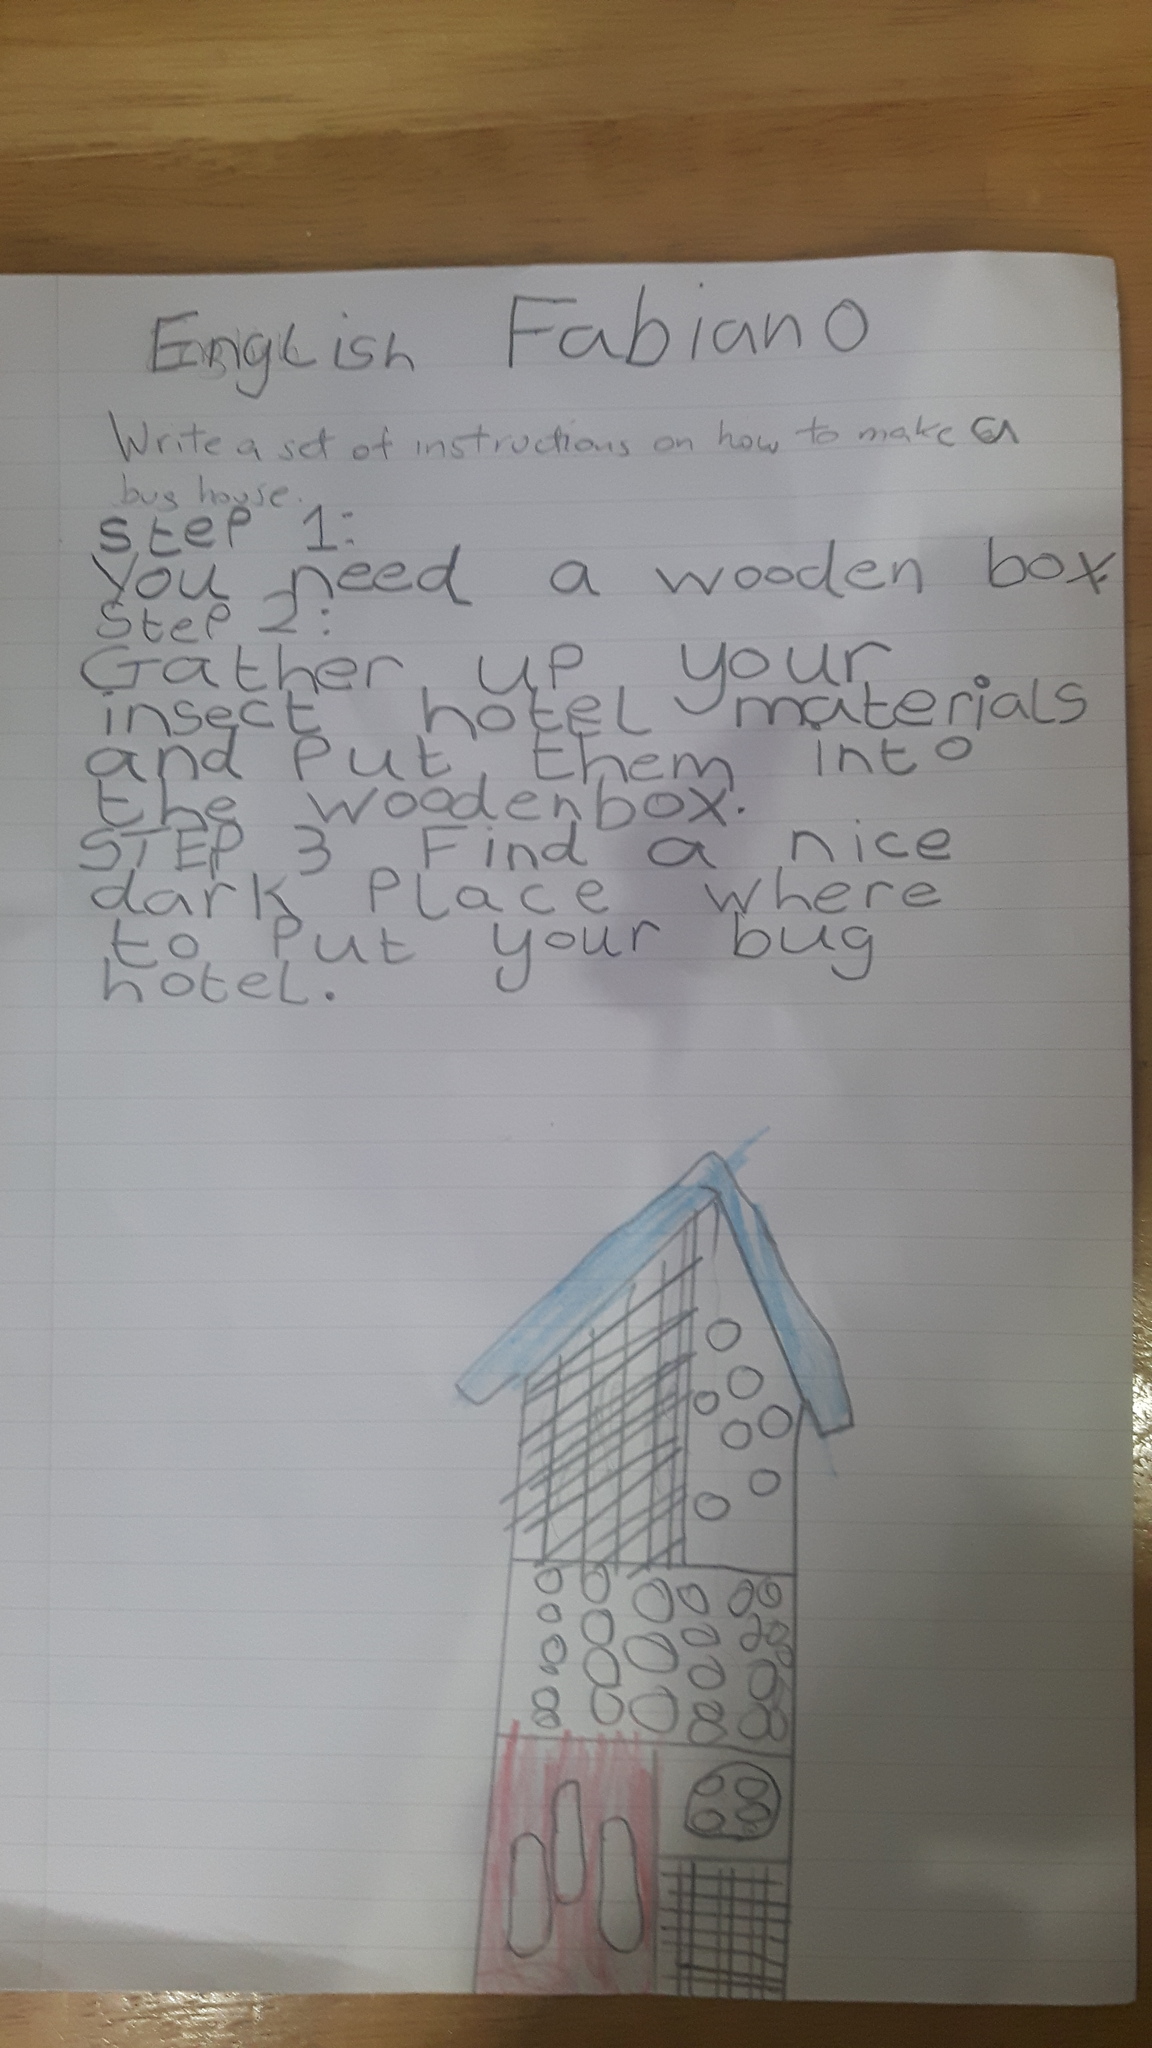 English Fabiano
Write a set of instructions on how to make a
bug house.
Step 1:
You need a wooden box.
Step 2:
Gather up your
insect hotel materials
and put them into
the wooden box.
STEP 3 Find a nice
dark place where
to put your bug
hotel.